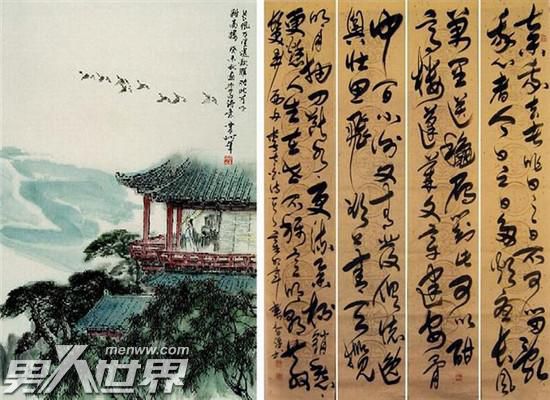 棄我去者昨日之日不可留亂
我心者今日之日多煩憂長風
萬里送秋雁對此可以酣
高樓蓬萊文章建安骨
中間小謝又清發俱懷逸
興壯思飛欲上青天攬
明月抽刀斷水水更流舉杯銷愁愁
更愁人生在世不稱意明朝散
髮弄
長風万里送秋雁對此可以
酣高樓癸未秋
男人世界
www.menww.com